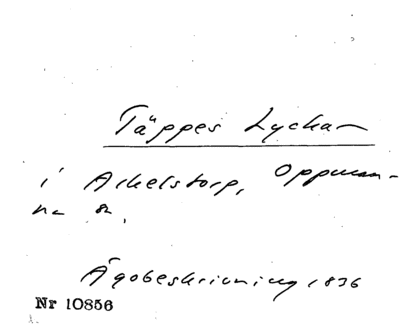 Täppes Lyckan
i Arkelstorp, Oppman-
na sn.
Ägobeskrivning 1836
Nr 10856